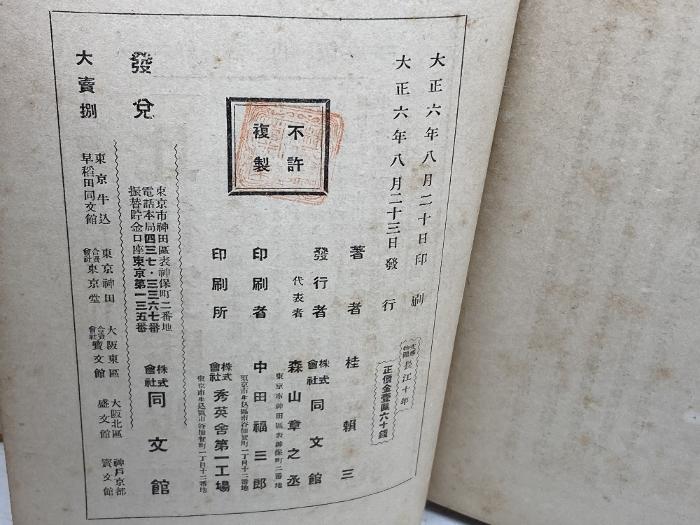 大正六年八月二十日印刷
大正六年八月二十三日發行
長江十年
正價金壹圓六十錢
著者 桂頼三
發行者 株式會社 同文館
代表者 森山章之丞
東京市神田區表神保町二番地
印刷者 中田福三郎
印刷所 株式會社 秀英舎第一工場
不許複製
東京市神田區表神保町二番地
電話本局四三七・三三六七番
振替貯金口座東京第一三五番
發兌 株式會社 同文館
大賣捌
東京牛込 早稻田同文館
東京神田 合資會社 東京堂
大阪東區 合資會社 寶文館
大阪北區 盛文館
神戸京都 寶文館